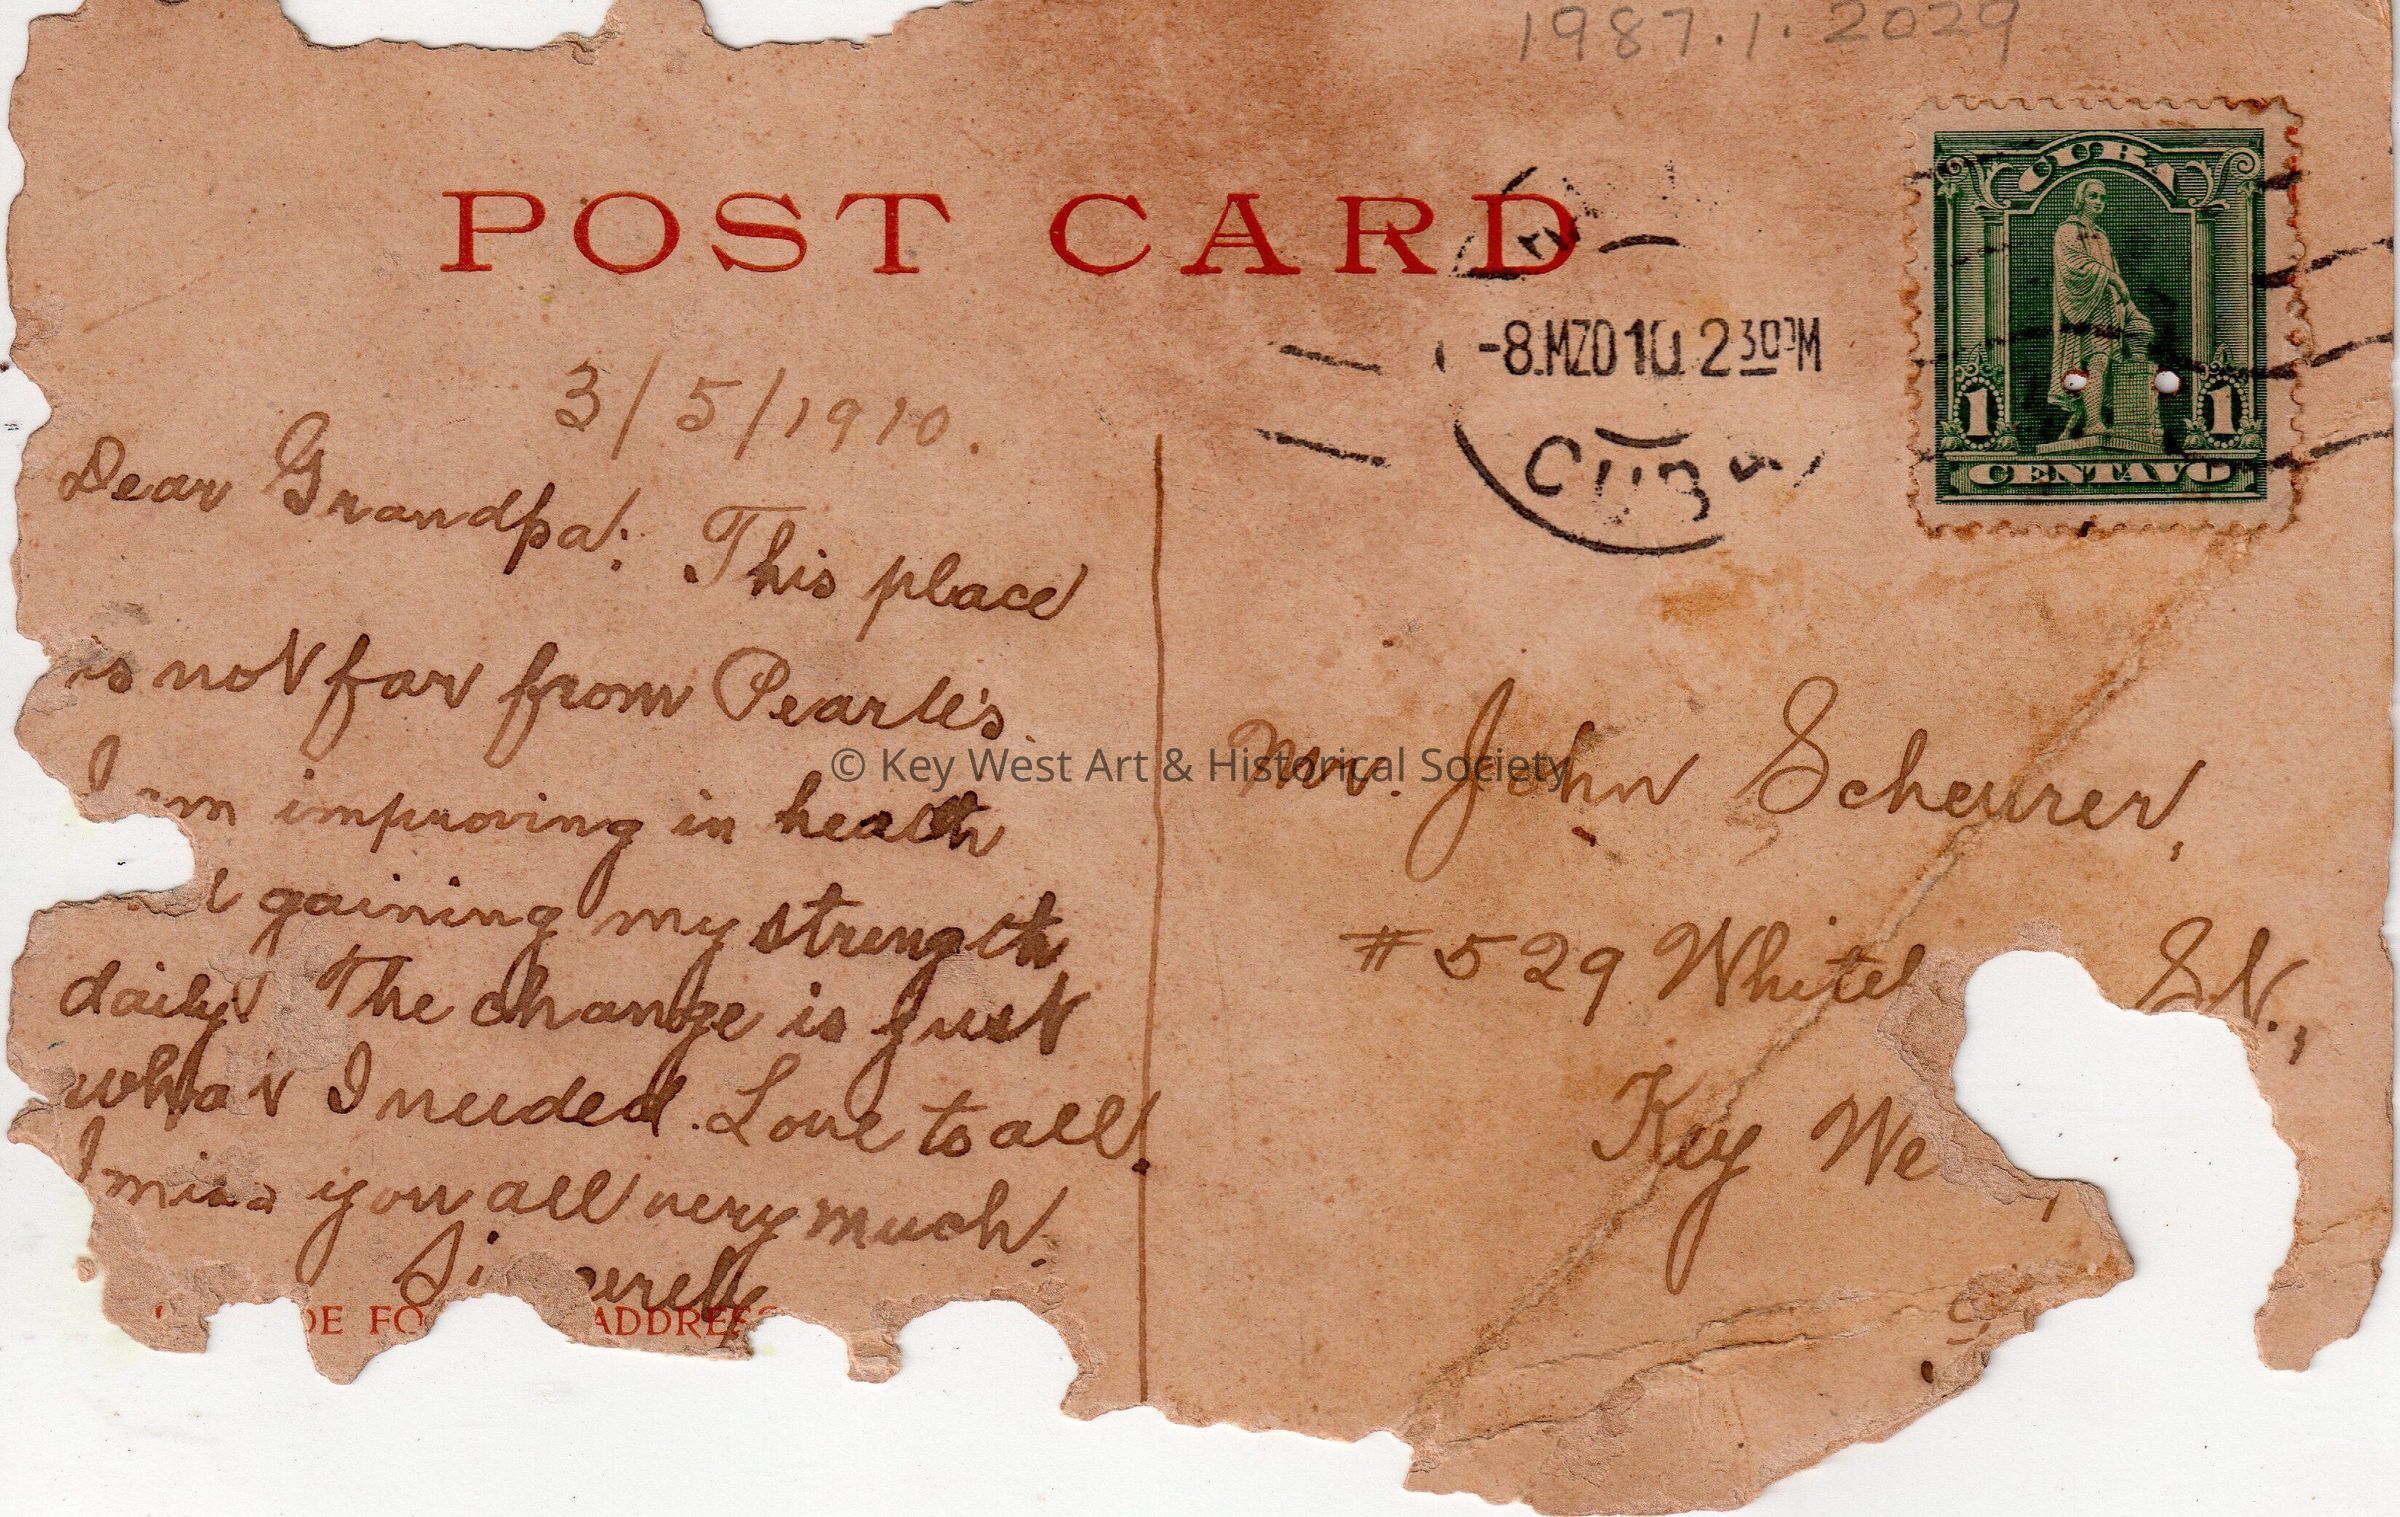 1987.1.2029
POST CARD
CUBA
1 1
CENTAVO
-8.MZO 10 2 30 PM
CUBA
3/5/1910.
Dear Grandpa: This place
is not far from Pearle's.
I am improving in health
gaining my strength
daily. The change is just
what I needed. Love to all.
I miss you all very much.
Sincerely
DE FO ADDRES
Mr. John Scheurer,
#529 White St.,
Key We
© Key West Art & Historical Society